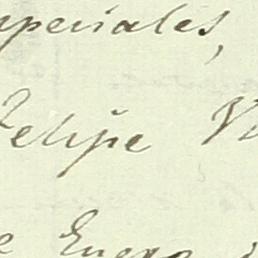 mperiales,
Felipe V
e Enero